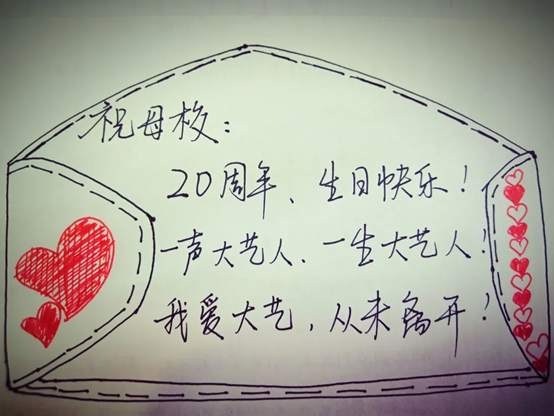 祝母校:
20周年、生日快乐!
一声大艺人、一生大艺人!
我爱大艺,从未离开!